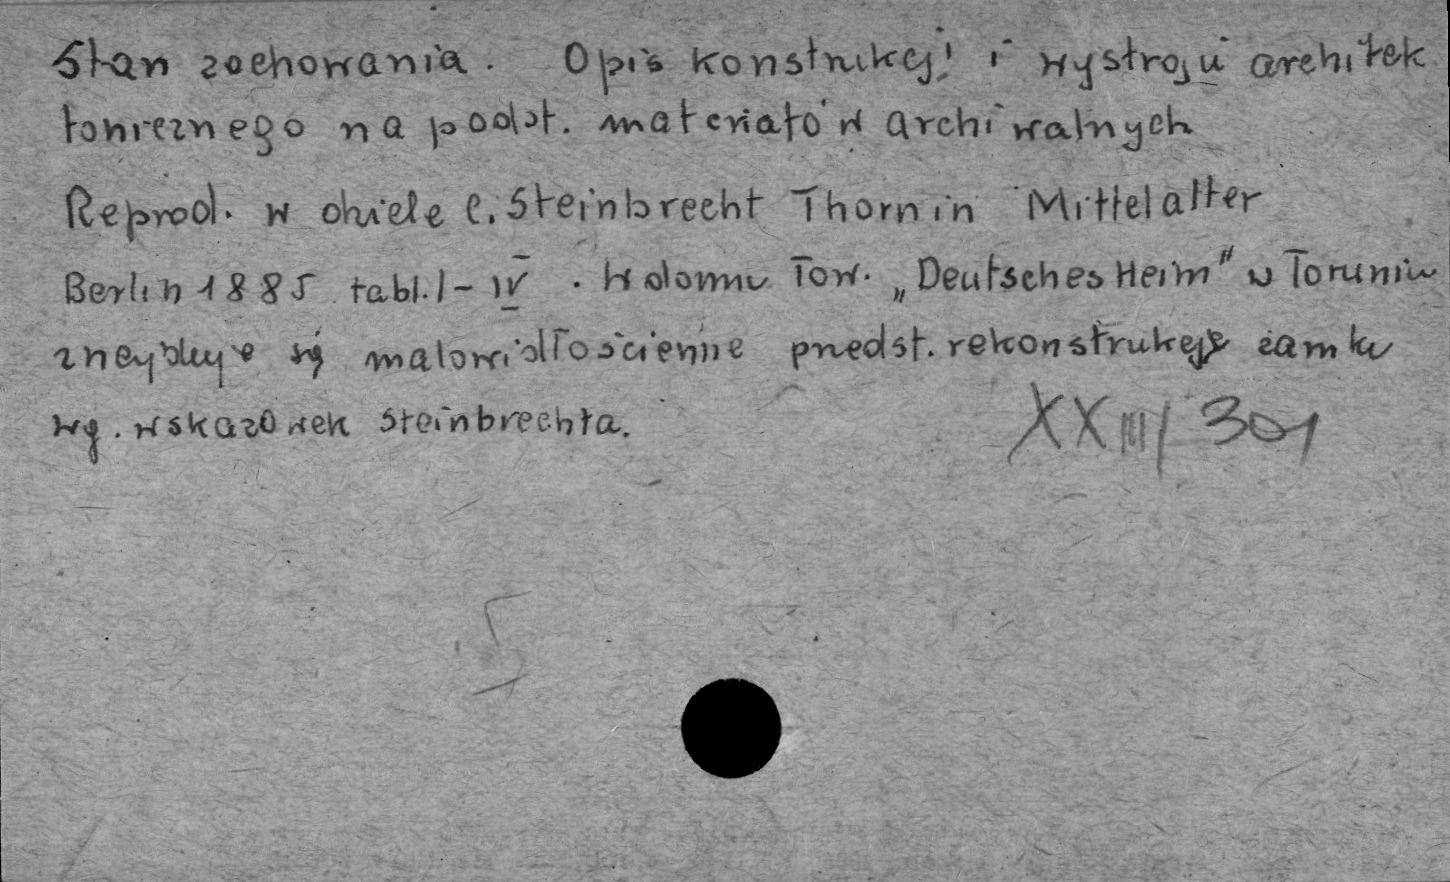 Stan zachowania. Opis konstrukcji i wystroju architek
tonicznego na podst. materiałów archiwalnych
Reprod. w dziele C. Steinbrecht Thorn in Mittelalter
Berlin 1885 tabl. I-IV. W domu Tow. „Deutsches Heim" w Toruniu
znajduje się malowidło ścienne przedst. rekonstrukcję zamku
wg. wskazówek Steinbrechta.
XXIII/301